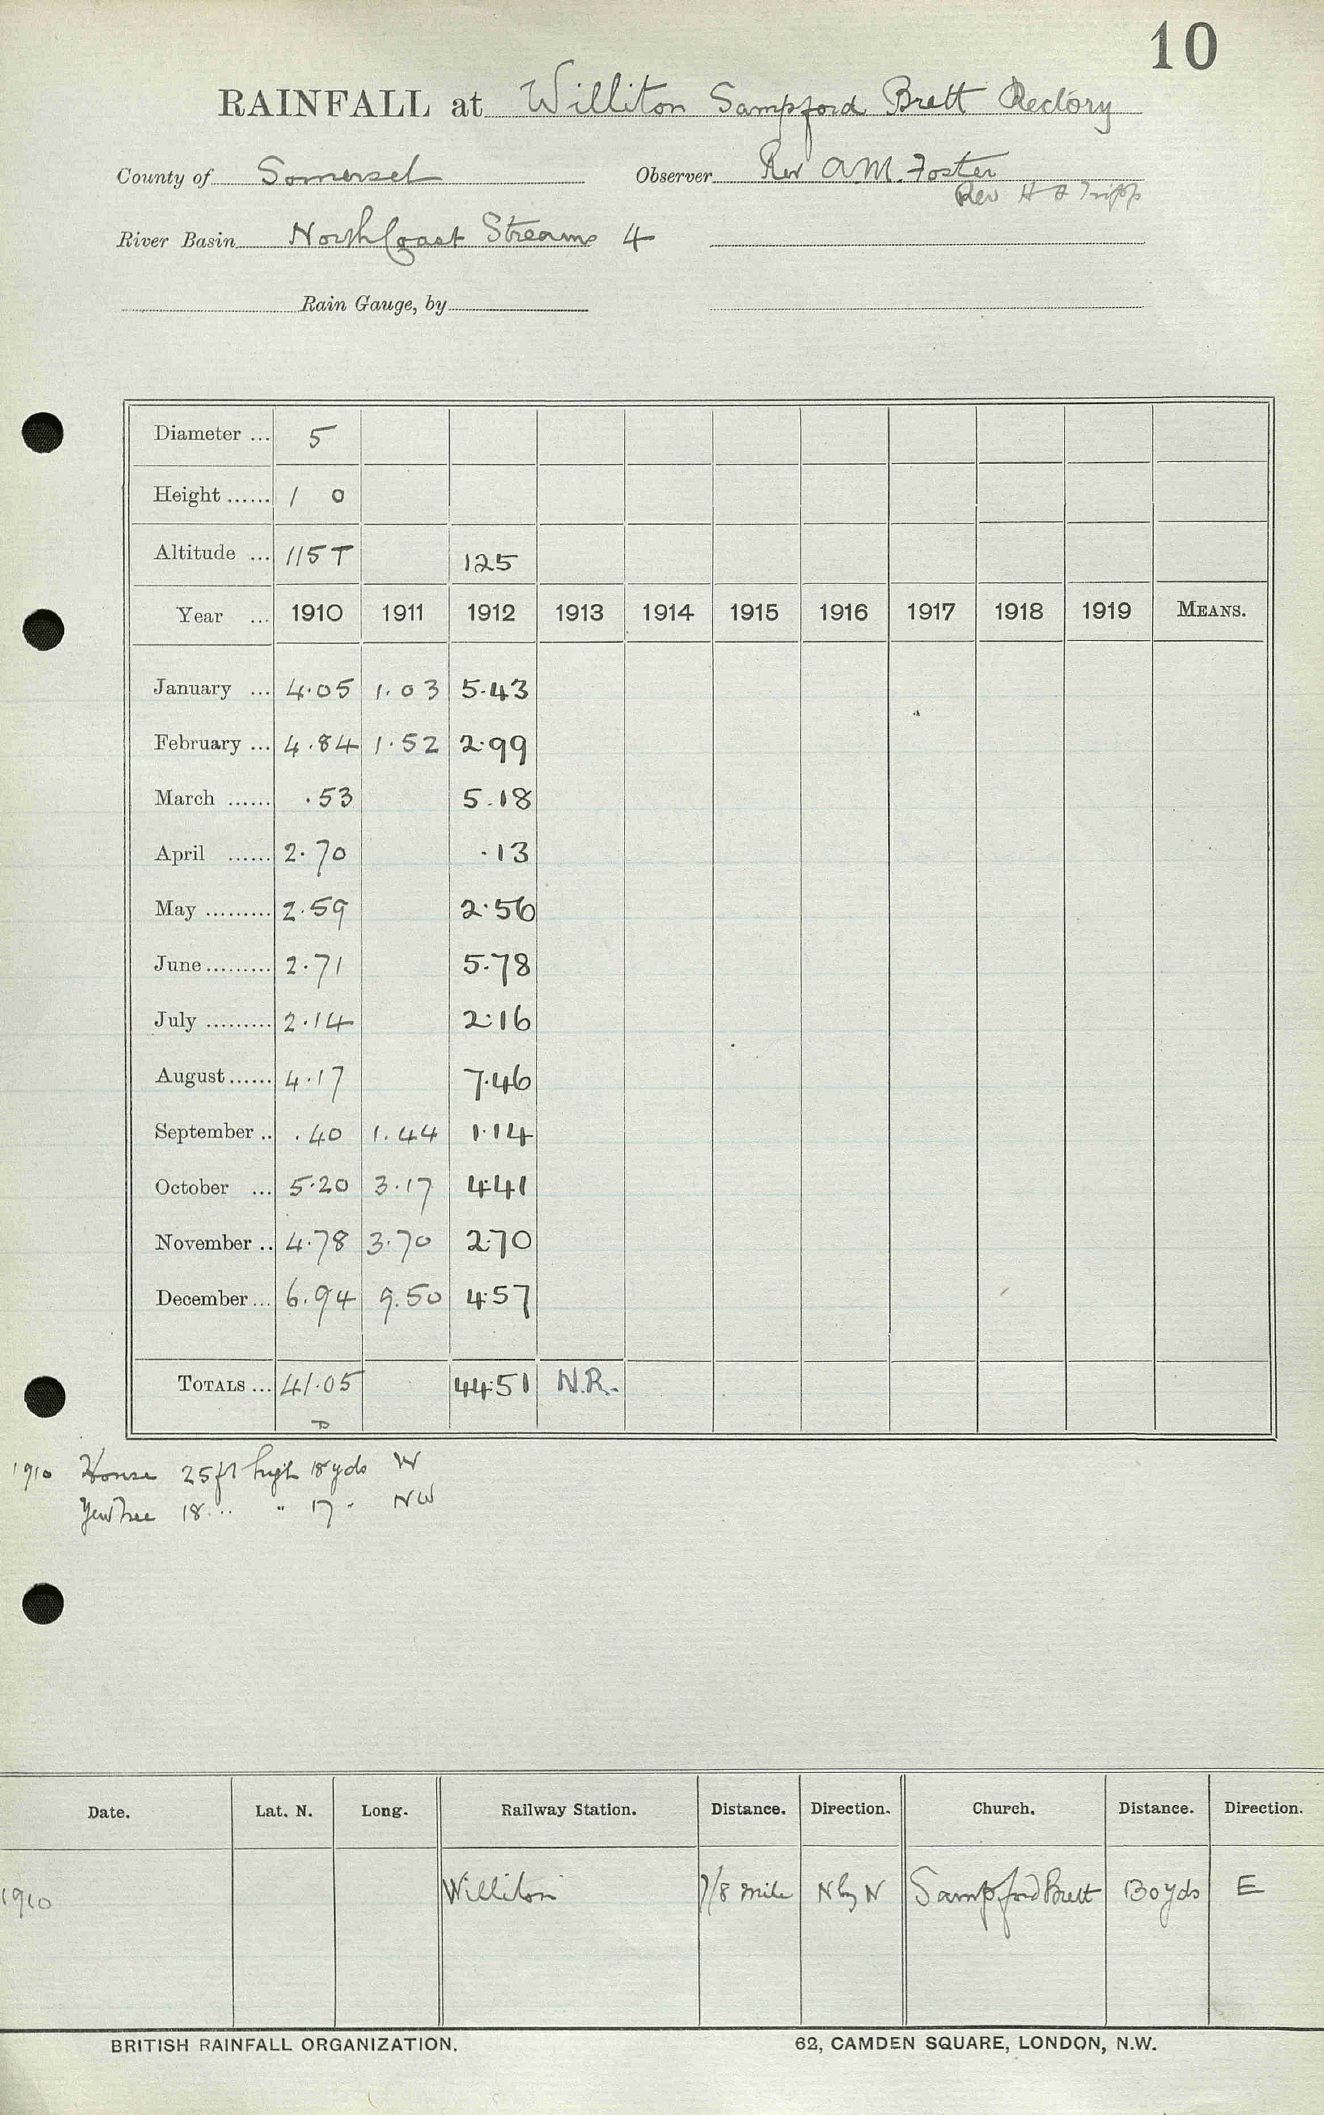 10
RAINFALL at Williton Sampford Brett Rectory
County of Somerset Observer Rev A.M. Foster
Rev H Tripp
River Basin North Coast Streams 4
Rain Gauge, by
Diameter ... 5
Height ...... 1 0
Altitude ... 115 T 125
Year ... 1910 1911 1912 1913 1914 1915 1916 1917 1918 1919 MEANS.
January ... 4.05 1.03 5.43
February ... 4.84 1.52 2.99
March ...... .53 5.18
April ...... 2.70 .13
May ......... 2.59 2.56
June ......... 2.71 5.78
July ......... 2.14 2.16
August ...... 4.17 7.46
September .. .40 1.44 1.14
October ... 5.20 3.17 4.41
November .. 4.78 3.70 2.70
December ... 6.94 9.50 4.57
TOTALS ... 41.05 44.51 N.R.
1910 House 25 ft high 18 yds W
Yew Tree 18 ... " 17 " NW
Date. Lat. N. Long. Railway Station. Distance. Direction. Church. Distance. Direction.
1910 Williton 7/8 mile N by N Sampford Brett 130 yds E
BRITISH RAINFALL ORGANIZATION. 62, CAMDEN SQUARE, LONDON, N.W.